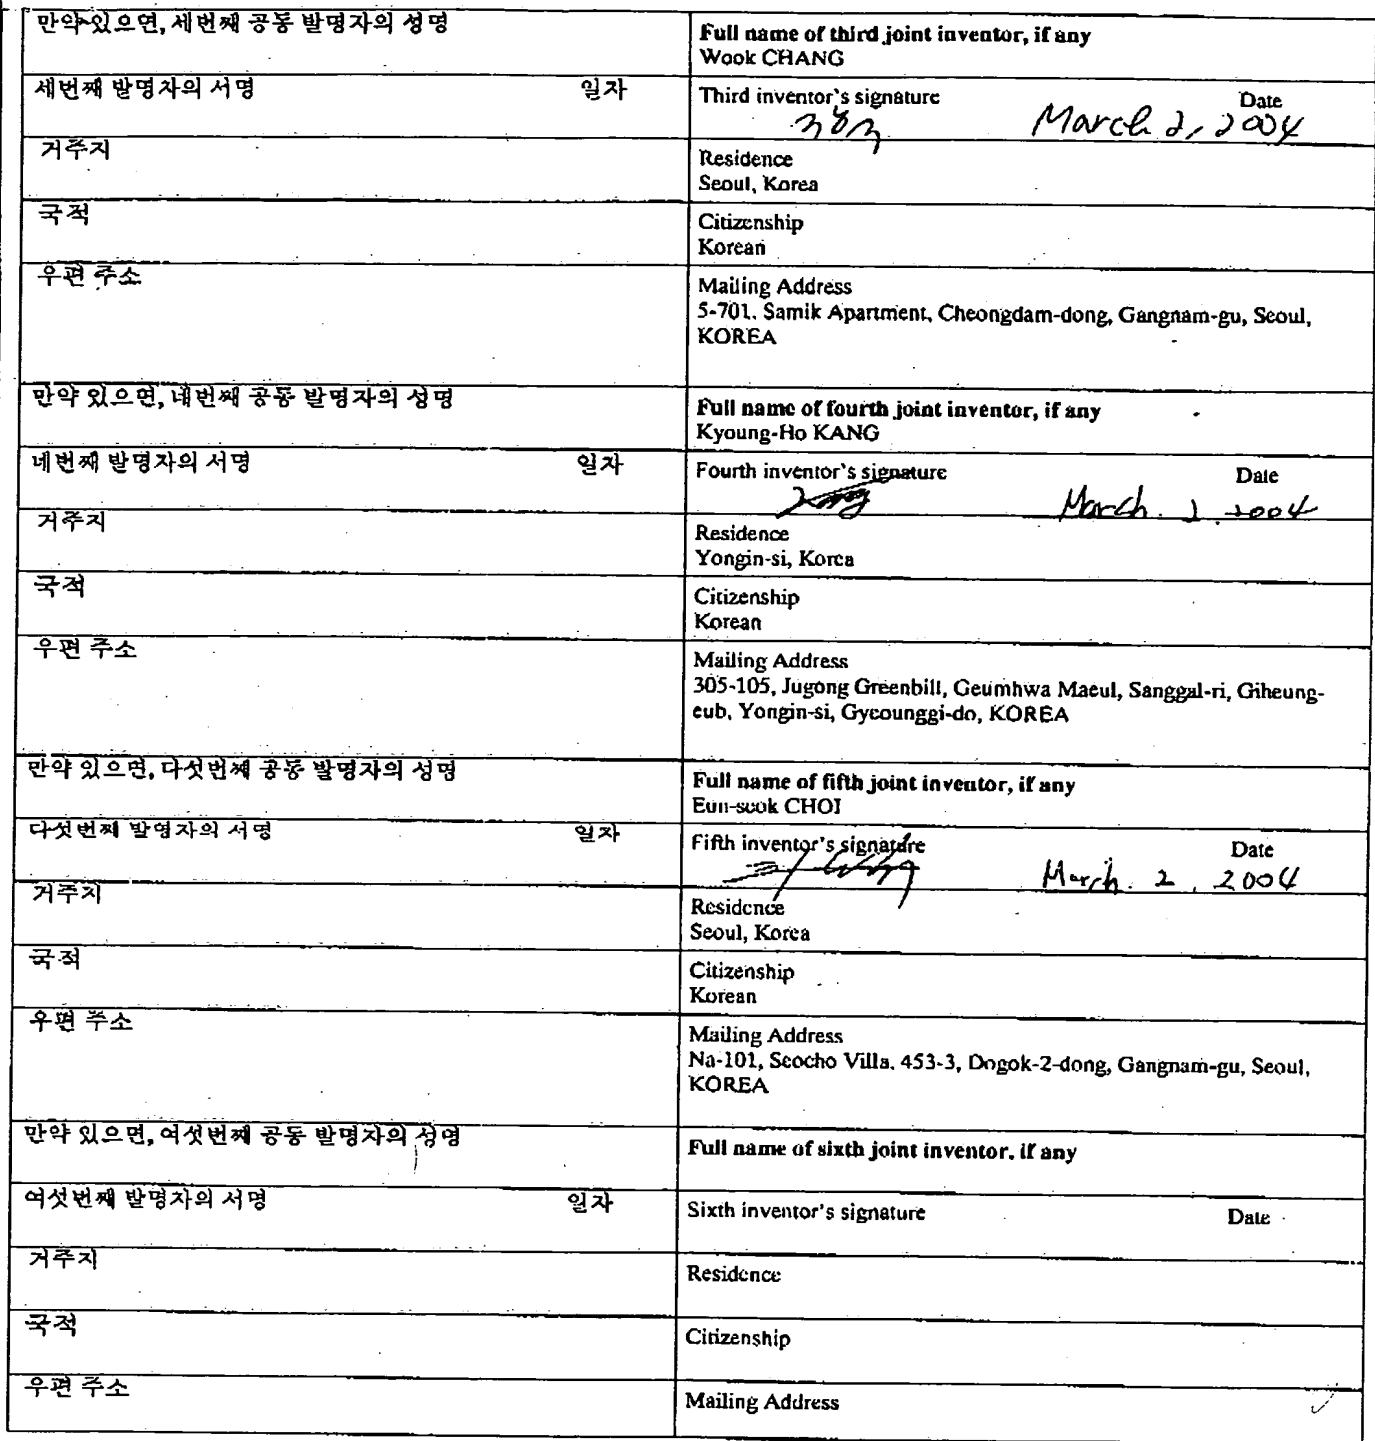 만약 있으면, 세번째 공동 발명자의 성명
Full name of third joint inventor, if any
Wook CHANG
세번째 발명자의 서명 일자
Third inventor's signature Date
March 2, 2004
거주지
Residence
Seoul, Korea
국적
Citizenship
Korean
우편 주소
Mailing Address
5-701, Samik Apartment, Cheongdam-dong, Gangnam-gu, Seoul,
KOREA
만약 있으면, 네번째 공동 발명자의 성명
Full name of fourth joint inventor, if any
Kyoung-Ho KANG
네번째 발명자의 서명 일자
Fourth inventor's signature Date
March. 2. 2004
거주지
Residence
Yongin-si, Korea
국적
Citizenship
Korean
우편 주소
Mailing Address
305-105, Jugong Greenbill, Geumhwa Maeul, Sanggal-ri, Giheung-
eub, Yongin-si, Gyeounggi-do, KOREA
만약 있으면, 다섯번째 공동 발명자의 성명
Full name of fifth joint inventor, if any
Eun-seok CHOI
다섯번째 발명자의 서명 일자
Fifth inventor's signature Date
March. 2, 2004
거주지
Residence
Seoul, Korea
국적
Citizenship
Korean
우편 주소
Mailing Address
Na-101, Seocho Villa, 453-3, Dogok-2-dong, Gangnam-gu, Seoul,
KOREA
만약 있으면, 여섯번째 공동 발명자의 성명
Full name of sixth joint inventor, if any
여섯번째 발명자의 서명 일자
Sixth inventor's signature Date
거주지
Residence
국적
Citizenship
우편 주소
Mailing Address